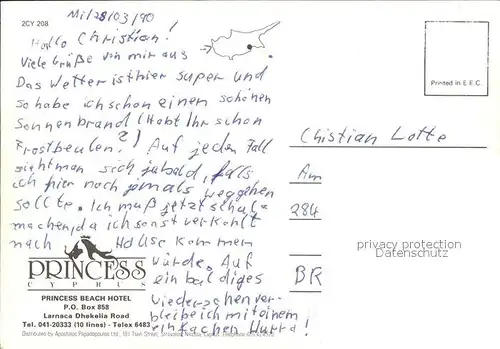 2CY 208
Mi/28/03/90
Hallo Christian!
Viele Grüße von mir aus
Das Wetter ist hier super und
so habe ich schon einen schönen
Sonnenbrand (Habt Ihr schon
Frostbeulen?) Auf jeden Fall
sieht man sich ja bald, falls
ich hier noch jemals weggehen
sollte. Ich muß jetzt schluß=
machen, da ich sonst verkohlt
nach Hause kommen
würde. Auf
ein baldiges
Wiedersehen ver-
bleibe ich mit einem
einfachen Hurra!
PRINCESS
CYPRUS
PRINCESS BEACH HOTEL
P.O. Box 858
Larnaca Dhekelia Road
Tel. 041-20333 (10 lines) - Telex 6483
Printed in E.E.C.
Chistian Lotte
Am
284
BR
privacy protection
Datenschutz